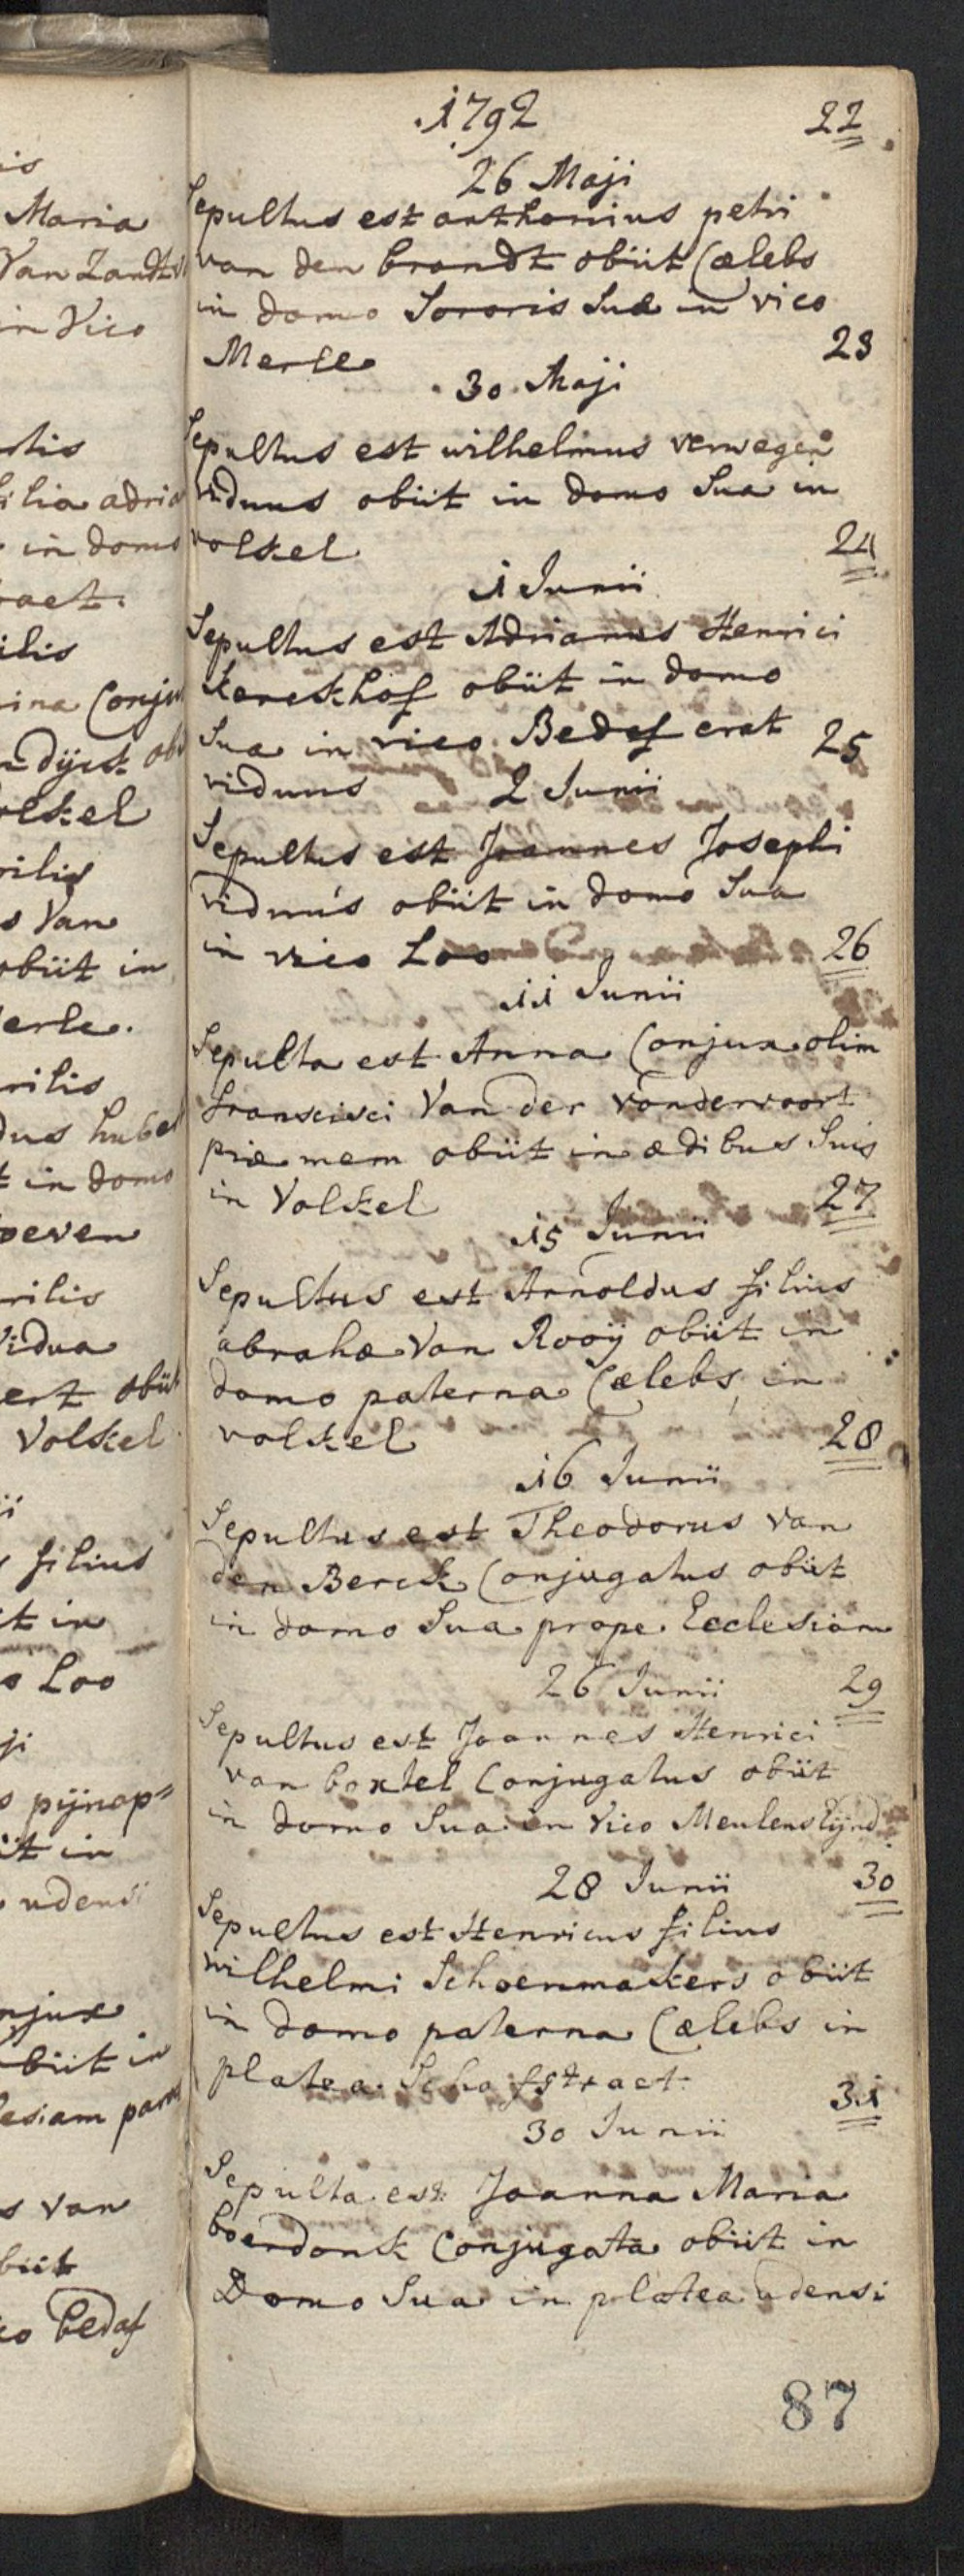 1792 22
26 Maji
Sepultus est anthonius petri
van den brandt obiit Cælebs
in domo Sororis Suæ in vico
Merle 23
30 Maji
Sepultus est wilhelmus verwegen
viduus obiit in domo Sua in
volkel 24
1 Junii
Sepultus est Adrianus Henrici
Kerckhof obiit in domo
Sua in vico Bedaf erat 25
viduus 2 Junii
Sepultus est Joannes Josephi
viduus obiit in domo Sua
in vico Loo 26
11 Junii
Sepulta est Anna Conjux olim
fransisci Van der Vondervoort
obiit in ædibus Suis
in Volkel 27
15 Junii
Sepultus est Arnoldus filius
abrahæ Van Rooÿ obiit in
domo paterna Cælebs in
volkel 28
16 Junii
Sepultus est Theodorus van
den Berck Conjugatus obiit
in domo Sua prope Ecclesiam
26 Junii 29
Sepultus est Joannes Henrici
van boxtel Conjugatus obiit
in domo Sua in Vico Meulens Eijnd
28 Junii 30
Sepultus est Henricus filius
wilhelmi Schoenmakers obiit
in domo paterna Cælebs in
platea Schafstraet 31
30 Junii
Sepulta est Joanna Maria
boerdonk Conjugata obiit in
Domo Sua in platea udensi
87
Maria
Van Zandt
in Vico
filia
in domo
Volkel
s Van
obiit in
in domo
Vidua
obiit
Volkel
filius
Loo
udensi
s van
bedaf